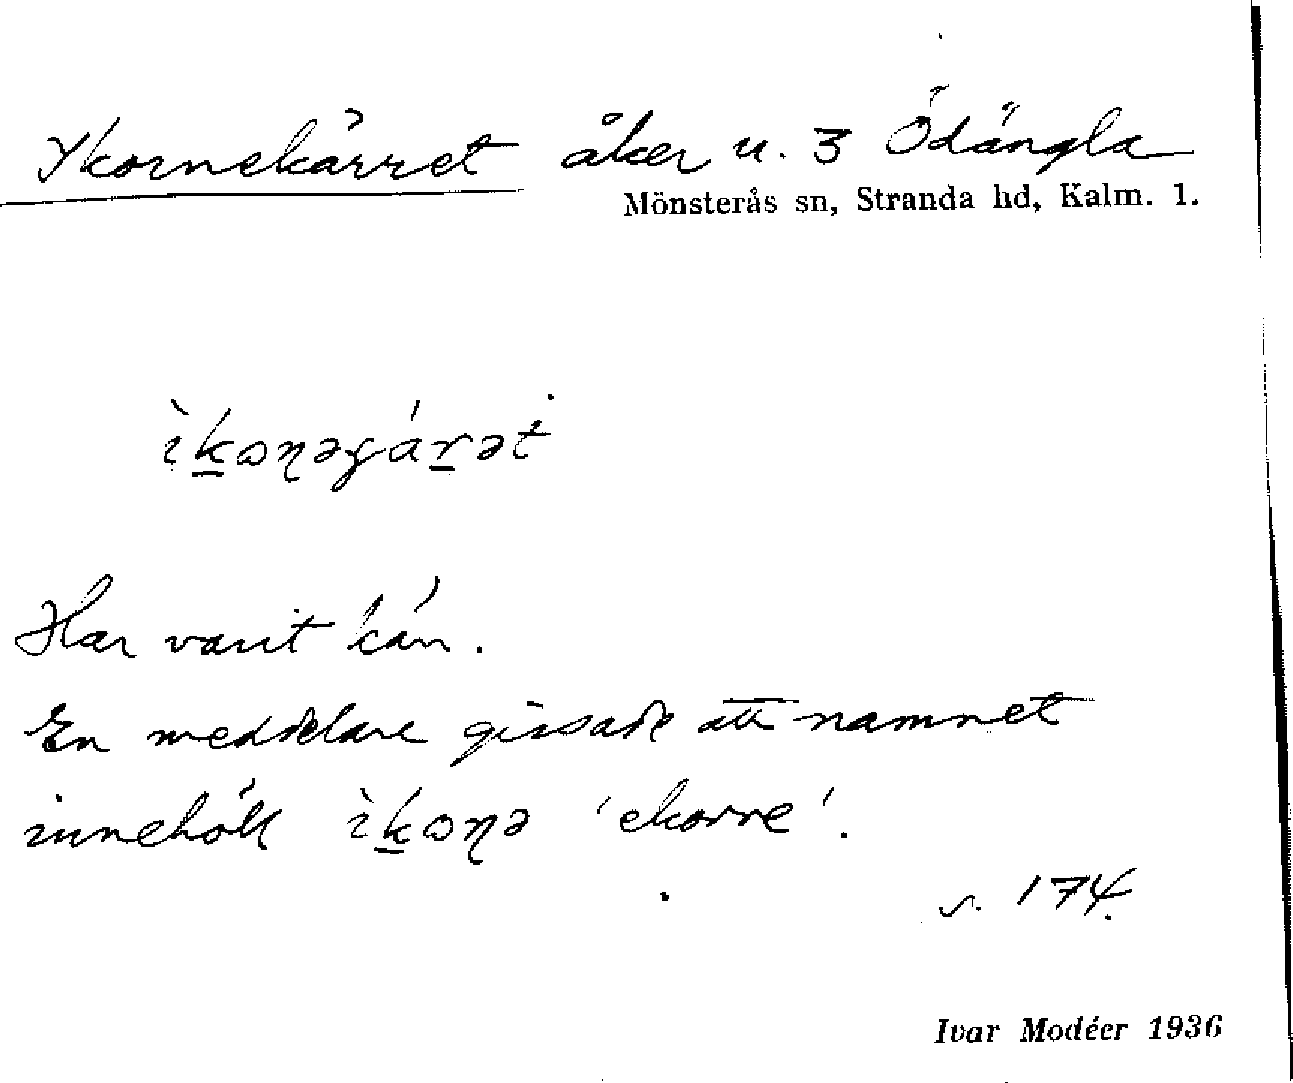 Ykornekärret åker u. 3 Ödängla
Mönsterås sn, Stranda hd, Kalm. l.
ìk̲ɷƞəɣár̲ət
Har varit kärr.
En meddelare gissade att namnet
innehöll ìk̲ɷƞə 'ekorre'.
s. 174.
Ivar Modéer 1936